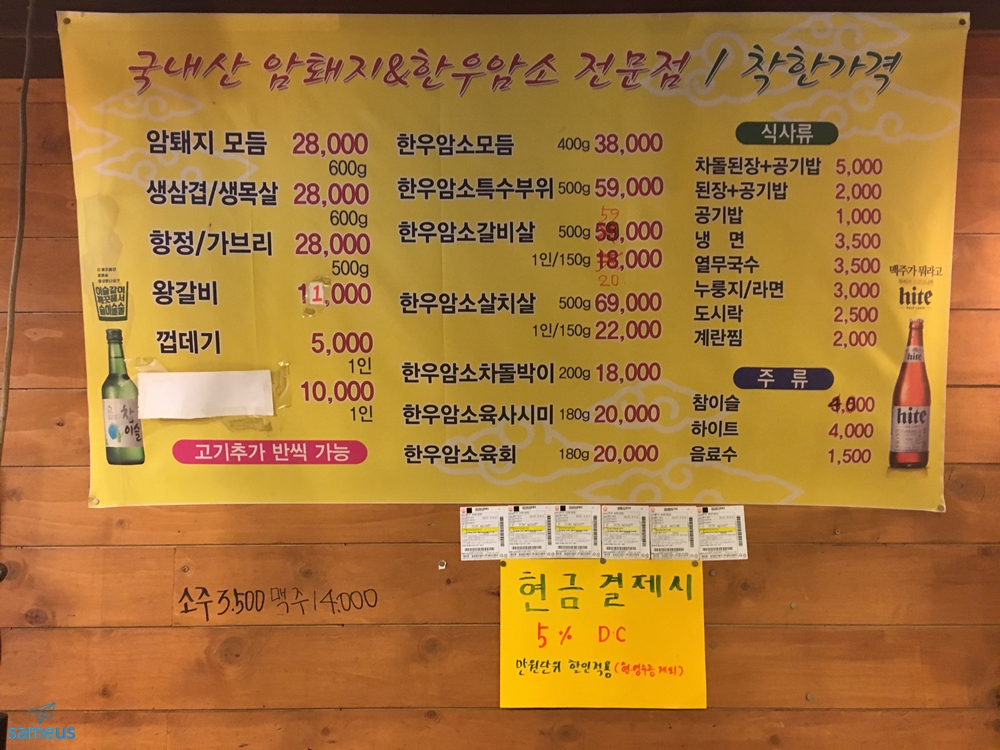 국내산 암퇘지&한우암소 전문점 / 착한가격
암퇘지 모듬 28,000
600g
생삼겹/생목살 28,000
600g
항정/가브리 28,000
500g
왕갈비 11,000
껍데기 5,000
1인
10,000
1인
고기추가 반씩 가능
한우암소모듬 400g 38,000
한우암소특수부위 500g 59,000
59
한우암소갈비살 500g 59,000
1인/150g 18,000
20
한우암소살치살 500g 69,000
1인/150g 22,000
한우암소차돌박이 200g 18,000
한우암소육사시미 180g 20,000
한우암소육회 180g 20,000
식사류
차돌된장+공기밥 5,000
된장+공기밥 2,000
공기밥 1,000
냉 면 3,500
열무국수 3,500
누룽지/라면 3,000
도시락 2,500
계란찜 2,000
주 류
참이슬
하이트 4,000
음료수 1,500
이슬같이
깨끗해서
술이술술
참
이슬
맥주가 뭐라고
hite
hite
hite
현금결제시
5% D.C
만원단위 할인적용 (현영수증 제외)
소주 3.500 맥주 / 4.000
sameus